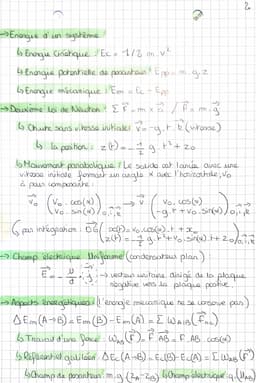 2
→ Energie d'un système
↳ Energie Cinétique : Ec = 1/2 m . v²
↳ Energie potentielle de pesanteur : Epp = m . g . z
↳ Energie mécanique : Em = Ec - Epp
→ Deuxième Loi de Newton : Σ F = m × a / P = m . g
↳ Chute sans vitesse initiale : v = -g . t . k (vitesse)
↳ la position : z(t) = -1/2 g . t² + z₀
↳ Mouvement parabolique : Le solide est lancé avec une
vitesse initiale formant un angle α avec l'horizontale, v₀
à pour composante :
v₀ (v₀ . cos(α) v₀ . sin(α))₀,i,k → v (v₀ . cos(α) -g . t + v₀ . sin(α))₀,i,k
(par intégration : OG (x(t) = v₀ . cos(α) . t + x₀ z(t) = -1/2 g . t² + v₀ . sin(α) . t + z₀)₀,i,k
→ Champ électrique Uniforme (condensateur plan)
E = - U/d . j → vecteur unitaire dirigé de la plaque
négative vers la plaque positive
→ Aspects énergétiques (l'énergie mécanique ne se conserve pas)
ΔEm(A→B) = Em(B) - Em(A) = Σ W_AB(F_nc)
↳ Travail d'une force : W_AB(F) = F . AB = F . AB . cos(α)
↳ Référentiel galiléen : ΔEc(A→B) = Ec(B) - Ec(A) = Σ W_AB(F)
↳ Champ de pesanteur : m . g (z_A - z_B) ↳ Champ électrique : q . (U_AB)